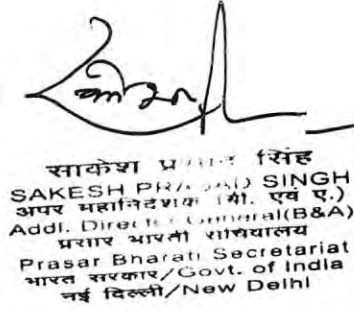 साकेश सिंह
SAKESH SINGH
अपर महानिदेशक एवं ए.)
Addl. General(B&A)
प्रसार भारती सचिवालय
Prasar Bharati Secretariat
भारत सरकार/Govt. of India
नई दिल्ली/New Delhi